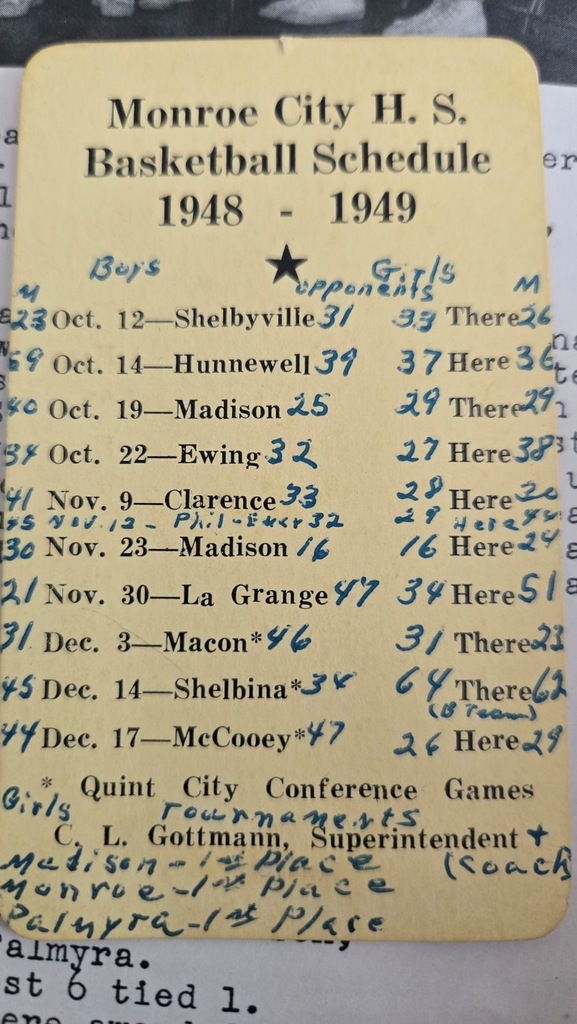 Monroe City H. S.
Basketball Schedule
1948 - 1949
Boys ★ Girls
M opponents M
23 Oct. 12—Shelbyville 31 33 There 26
59 Oct. 14—Hunnewell 39 37 Here 36
40 Oct. 19—Madison 25 29 There 29
34 Oct. 22—Ewing 32 27 Here 38
41 Nov. 9—Clarence 33 28 Here 30
45 Nov. 12 - Phil- 32 29 Here 44
30 Nov. 23—Madison 16 16 Here 24
21 Nov. 30—La Grange 47 34 Here 51
31 Dec. 3—Macon* 46 31 There 23
45 Dec. 14—Shelbina* 34 64 There 62
(B Team)
44 Dec. 17—McCooey* 47 26 Here 29
* Quint City Conference Games
Girls Tournaments
C. L. Gottmann, Superintendent +
Madison - 1st Place (Coach)
Monroe - 1st Place
Palmyra - 1st Place
almyra.
st 6 tied 1.